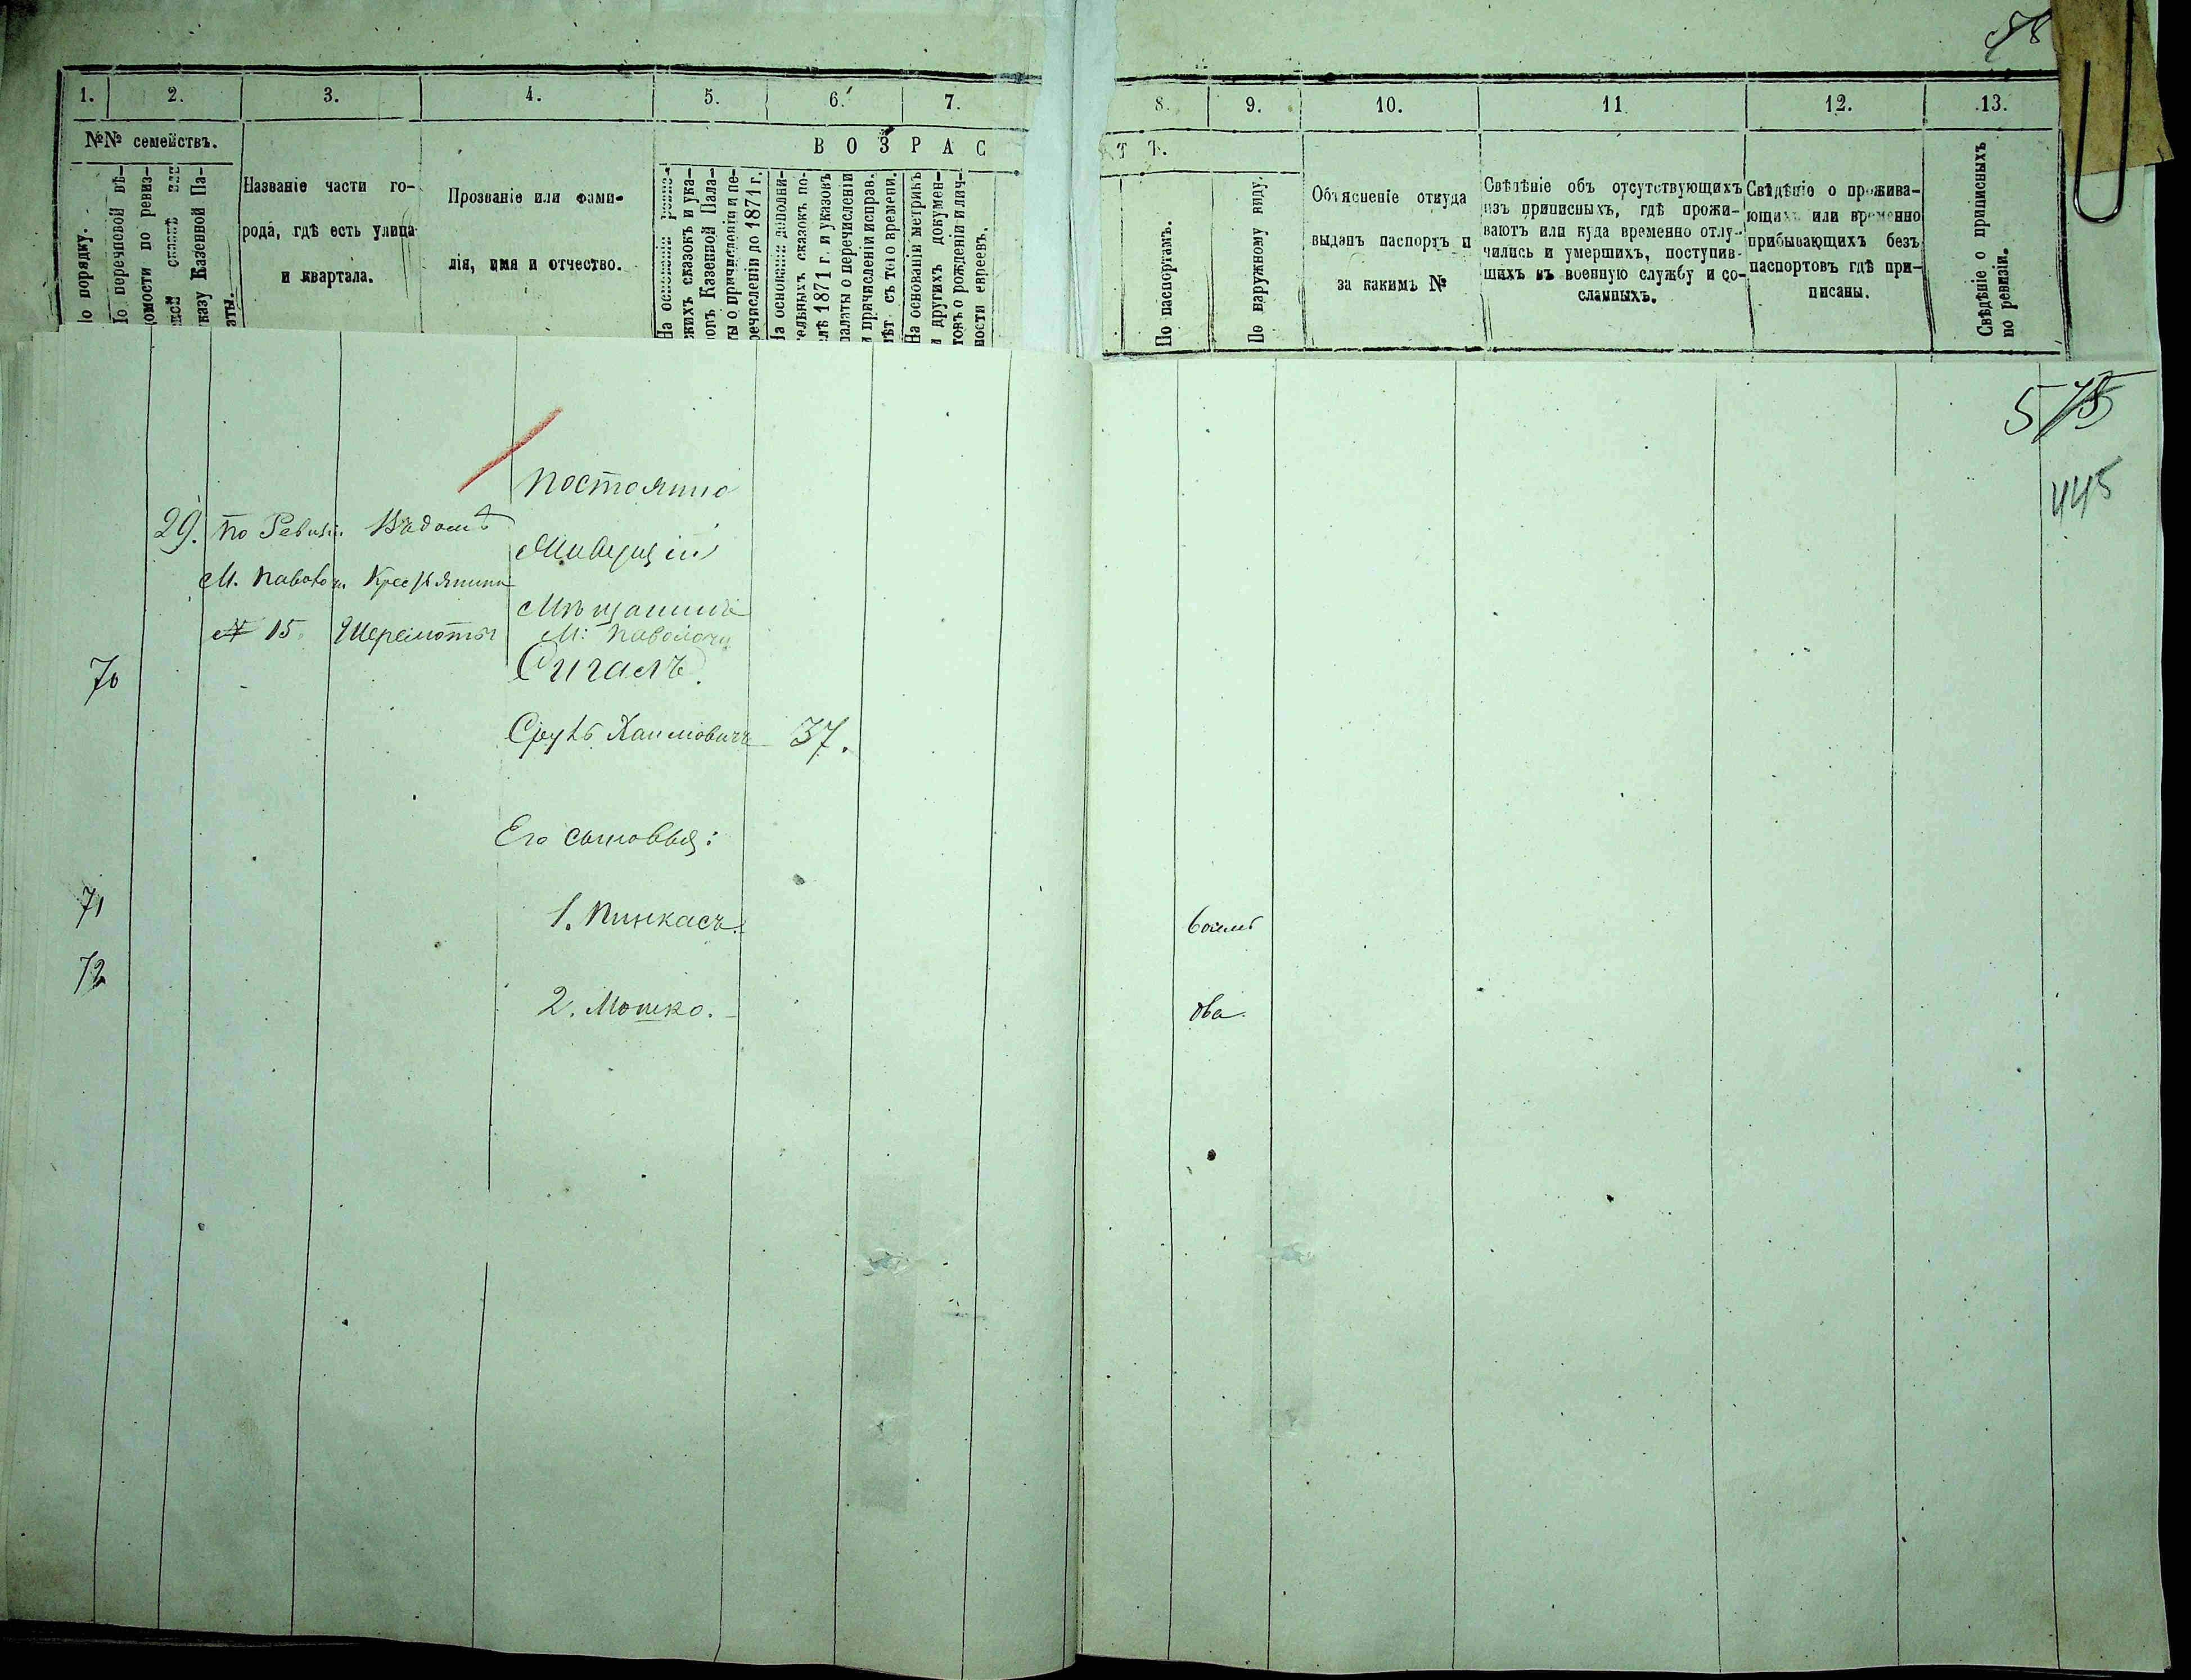 58
1. 2. 3. 4. 5. 6. 7. 8. 9. 10. 11. 12. 13.
№№ семействъ.
В О З Р А С Т Ъ.
По порядку.
По перечневой вѣ-
домости по ревиз-
ской сказкѣ или
указу Казенной Па-
латы.
Названіе части го-
рода, гдѣ есть улица
и квартала.
Прозваніе или фами-
лія, имя и отчество.
На основаніи ревиз-
скихъ сказокъ и ука-
зовъ Казенной Пала-
ты о причисленіи и пе-
речисленіи до 1871 г.
На основаніи дополни-
тельныхъ сказокъ по-
слѣ 1871 г. и указовъ
палаты о перечисленіи
и причисленіи исправ.
лѣт съ того времени.
На основаніи метрикъ
и другихъ докумен-
товъ о рожденіи и лич-
ности евреевъ.
По паспортамъ.
По наружному виду.
Объясненіе откуда
выданъ паспортъ и
за какимъ №
Свѣдѣніе объ отсутствующихъ
изъ приписныхъ, гдѣ прожи-
ваютъ или куда временно отлу-
чились и умершихъ, поступив-
шихъ въ военную службу и со-
сланныхъ.
Свѣдѣніе о прожива-
ющихъ или временно
прибывающихъ безъ
паспортовъ гдѣ при-
писаны.
Свѣдѣніе о приписныхъ
по ревизіи.
575
445
Постоянно
29. по Ревизіи Въ домѣ
Живущій
М. Паволочи Крестьянина
Мѣщанинъ
№ 15. Шереметы
М: Паволочи
70 Сигалъ
Сруль Хаимовичъ 37.
Его сыновья:
71 1. Пинкасъ. восемь
72 2. Мошко. два.